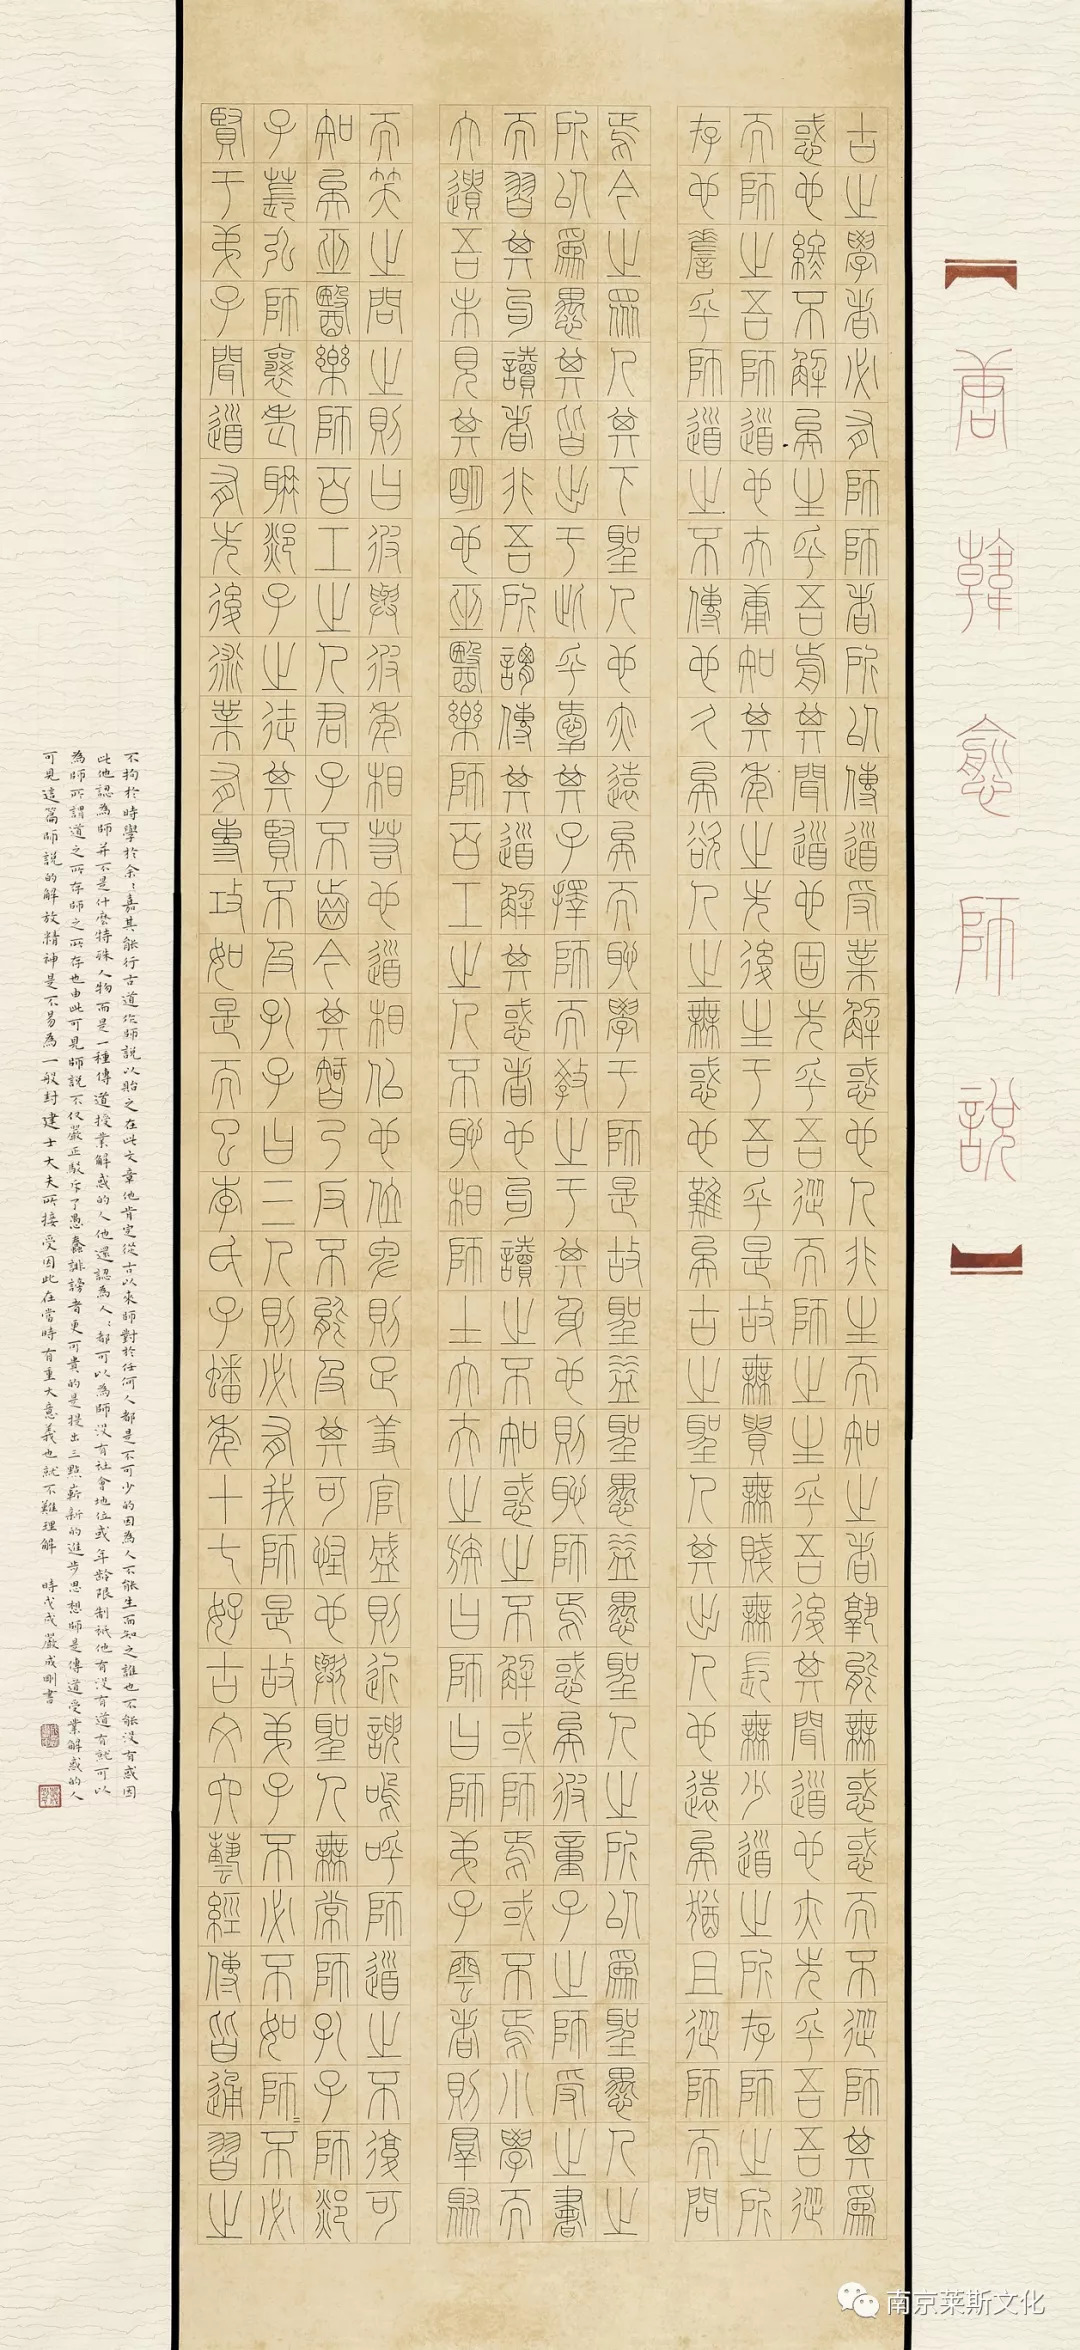 【唐韓愈師說】
古之學者必有師師者所以傳道受業解惑也人非生而知之者孰能無惑惑而不從師其為
惑也終不解矣生乎吾前其聞道也固先乎吾從而師之生乎吾後其聞道也亦先乎吾吾從
而師之吾師道也夫庸知其年之先後生于吾乎是故無貴無賤無長無少道之所存師之所
存也嗟乎師道之不傳也久矣欲人之無惑也難矣古之聖人其出人也遠矣猶且從師而問
焉今之眾人其下聖人也亦遠矣而恥學于師是故聖益聖愚益愚聖人之所以為聖愚人之
所以為愚其皆出于此乎愛其子擇師而教之于其身也則恥師焉惑矣彼童子之師受之書
而習其句讀者非吾所謂傳其道解其惑者也句讀之不知惑之不解或師焉或不焉小學而
大遺吾未見其明也巫醫樂師百工之人不恥相師士大夫之族曰師曰師弟子雲者則群聚
而笑之問之則曰彼與彼年相若也道相似也位卑則足羞官盛則近諛嗚呼師道之不復可
知矣巫醫樂師百工之人君子不齒今其智乃反不能及其可怪也歟聖人無常師孔子師郯
子萇弘師襄老聃郯子之徒其賢不及孔子曰三人則必有我師是故弟子不必不如師=不必
賢于弟子聞道有先後術業有專攻如是而已李氏子蟠年十七好古文六藝經傳皆通習之
不拘於時學於余=嘉其能行古道作師說以貽之在此文章他肯定從古以來師對於任何人都是不可少的因為人不能生而知之誰也不能沒有惑因
此他認為師并不是什麼特殊人物而是一種傳道授業解惑的人他還認為人=都可以為師沒有社會地位或年齡限制祇他有沒有道有就可以
為師所謂道之所存師之所存也由此可見師說不仅嚴正駁斥了愚蠢誹謗者更可貴的是提出三點嶄新的進步思想師是傳道受業解惑的人
可見這篇師說的解放精神是不易為一般封建士大夫所接受因此在當時有重大意義也就不難理解 時戊戌嚴成剛書
南京莱斯文化